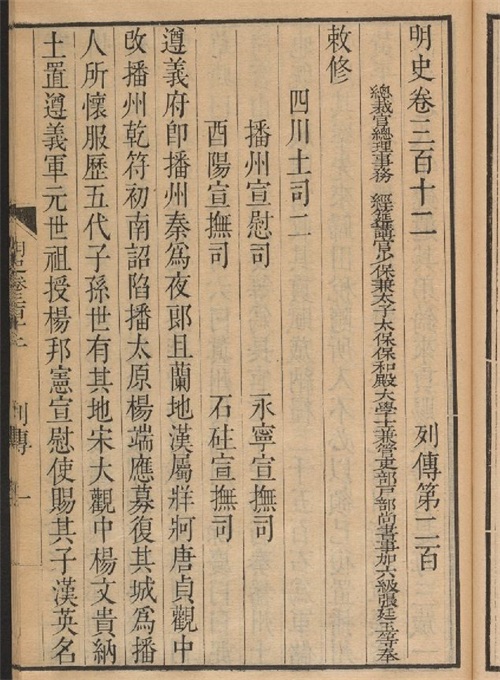 明史卷三百十二　列傳第二百
總裁官總理事務　經筵講官少保兼太子太保保和殿大學士兼管吏部戶部尚書事加六級張廷玉等奉
敕修
四川土司二
播州宣慰司　永寧宣撫司
酉陽宣撫司　石砫宣撫司
遵義府卽播州秦爲夜郞且蘭地漢屬牂牁唐貞觀中
改播州乾符初南詔陷播太原楊端應募復其城爲播
人所懷服歷五代子孫世有其地宋大觀中楊文貴納
土置遵義軍元世祖授楊邦憲宣慰使賜其子漢英名
明史卷三百十二　列傳　一